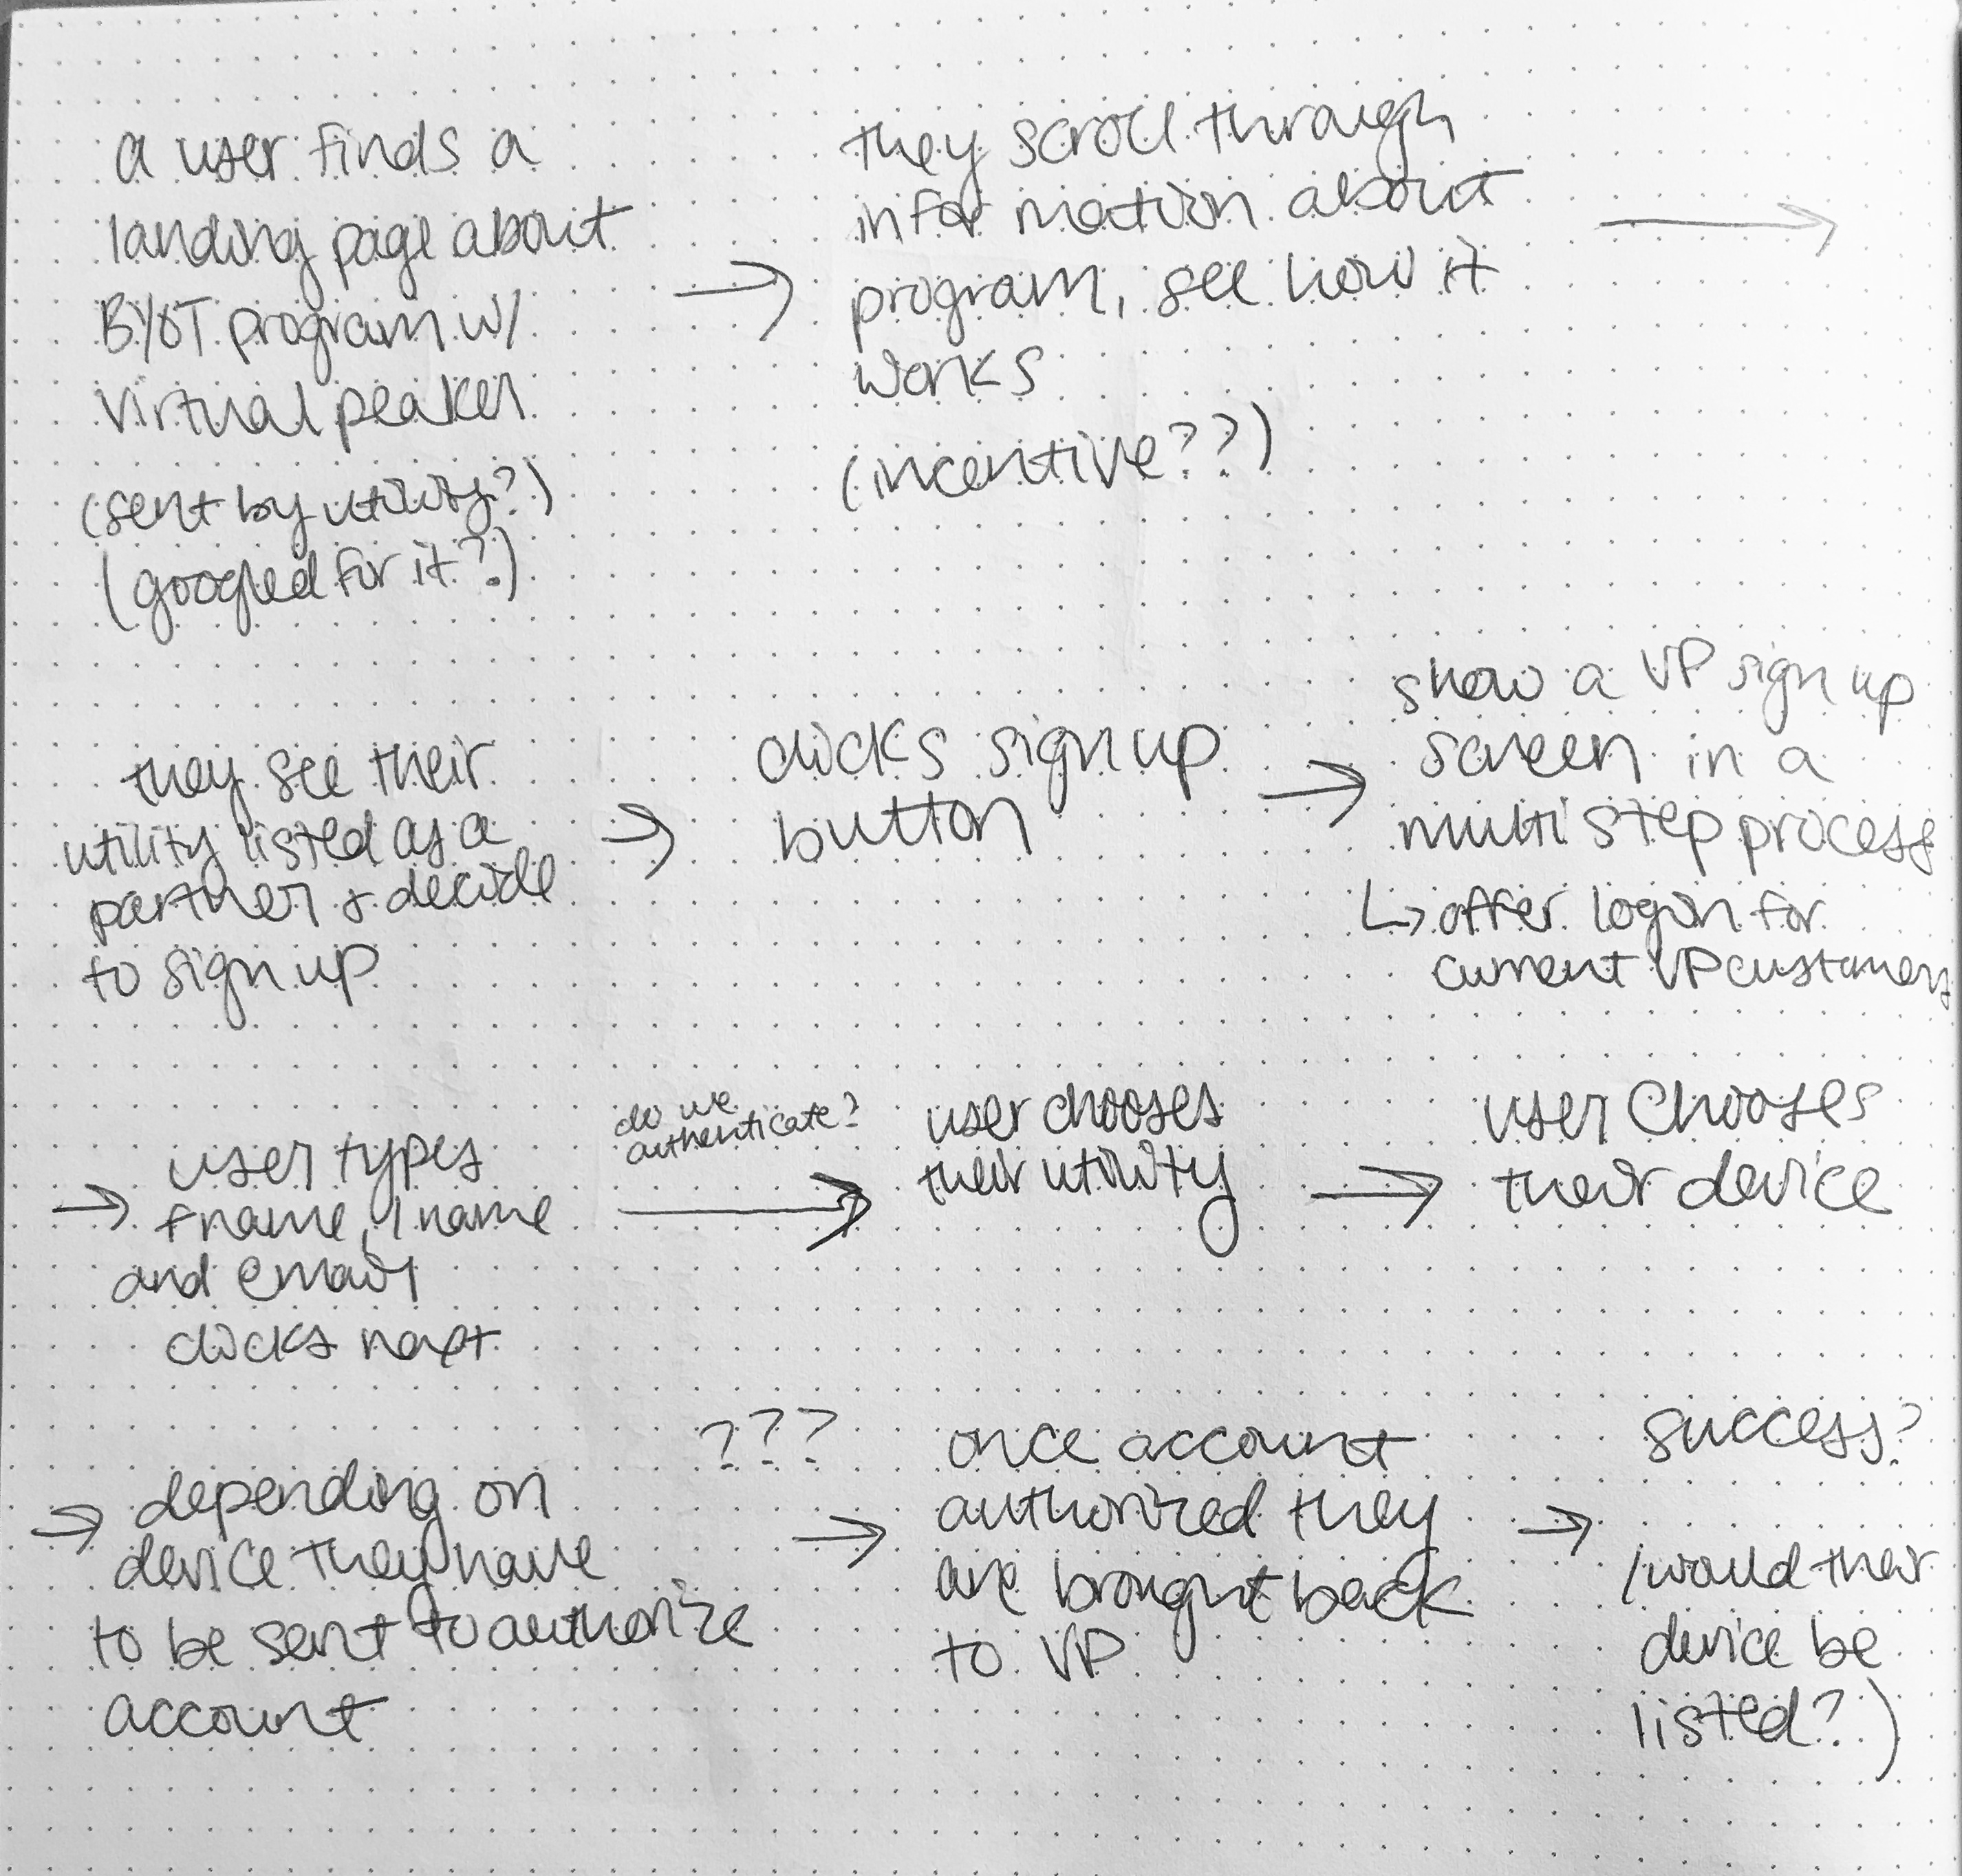 a user finds a
landing page about
BYOT program w/
virtual peaker
(sent by utility?)
(googled for it?)
they scroll through
information about
program, see how it
works
(incentive??)
they see their
utility listed as a
partner & decide
to sign up
clicks sign up
button
show a VP sign up
screen in a
multi step process
offer login for
current VP customers
user types
fname, lname
and email
clicks next
do we
authenticate?
user chooses
their utility
user chooses
their device
depending on
device they have
to be sent to authorize
account
???
once account
authorized they
are brought back
to VP
success?
(would their
device be
listed?)